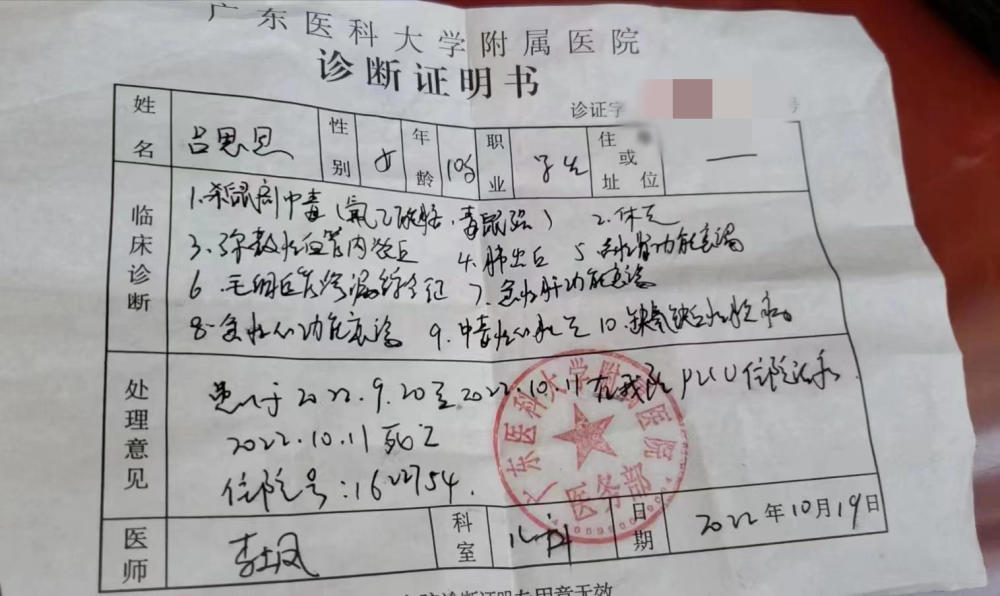 广东医科大学附属医院
诊断证明书
诊证字 号
姓名 吕思思 性别 女 年龄 10岁 职业 学生 住址或单位 —
临床诊断
1.杀鼠剂中毒(氟乙酰胺、毒鼠强) 2.休克
3.弥散性血管内凝血 4.肺出血 5.急性肾功能衰竭
6.毛细血管渗漏综合征 7.急性肝功能衰竭
8.急性心功能衰竭 9.中毒性心肌炎 10.缺氧缺血性脑病
处理意见
患儿于2022.9.20至2022.10.11在我院PICU住院治疗
2022.10.11死亡
住院号:1622754.
广东医科大学附属医院
医务部
医师 科室 儿科 日期 2022年10月19日
诊断证明专用章无效